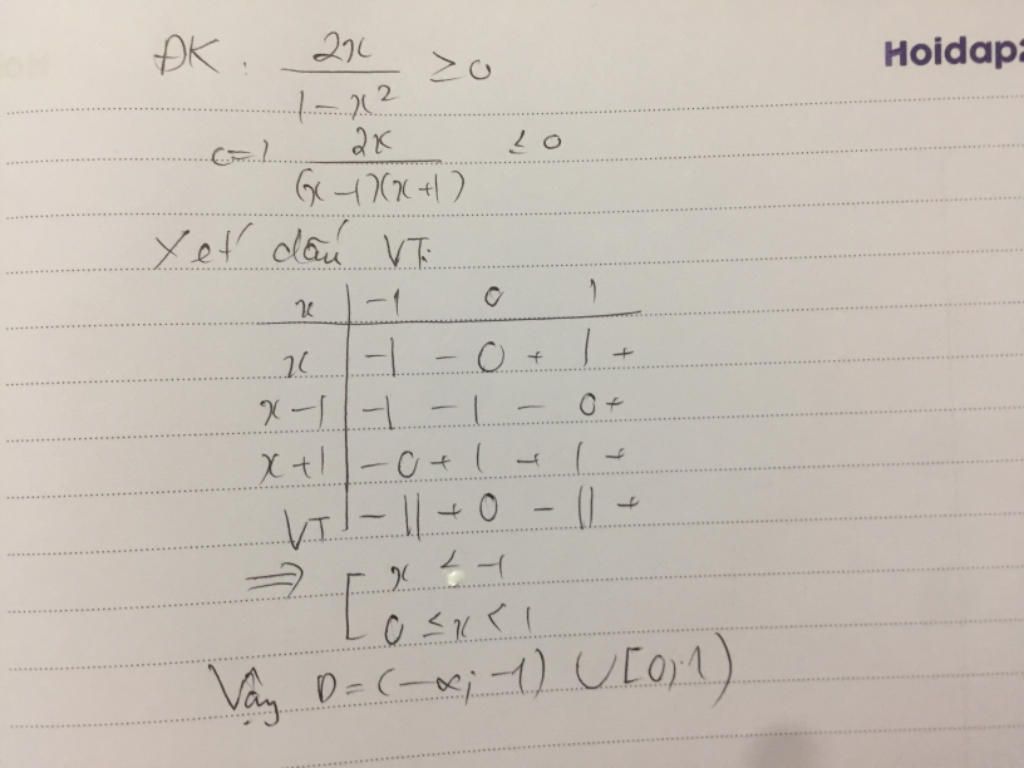 Hoidap
ĐK: 2x / 1 - x² ≥ 0
<=> 2x / (x-1)(x+1) ≤ 0
Xét dấu VT:
x | -1 0 1
x | - | - 0 + | +
x-1 | - | - | - 0 +
x+1 | - 0 + | + | +
VT | - || + 0 - || +
=> [ x < -1
0 ≤ x < 1
Vậy D = (-∞; -1) ∪ [0; 1)